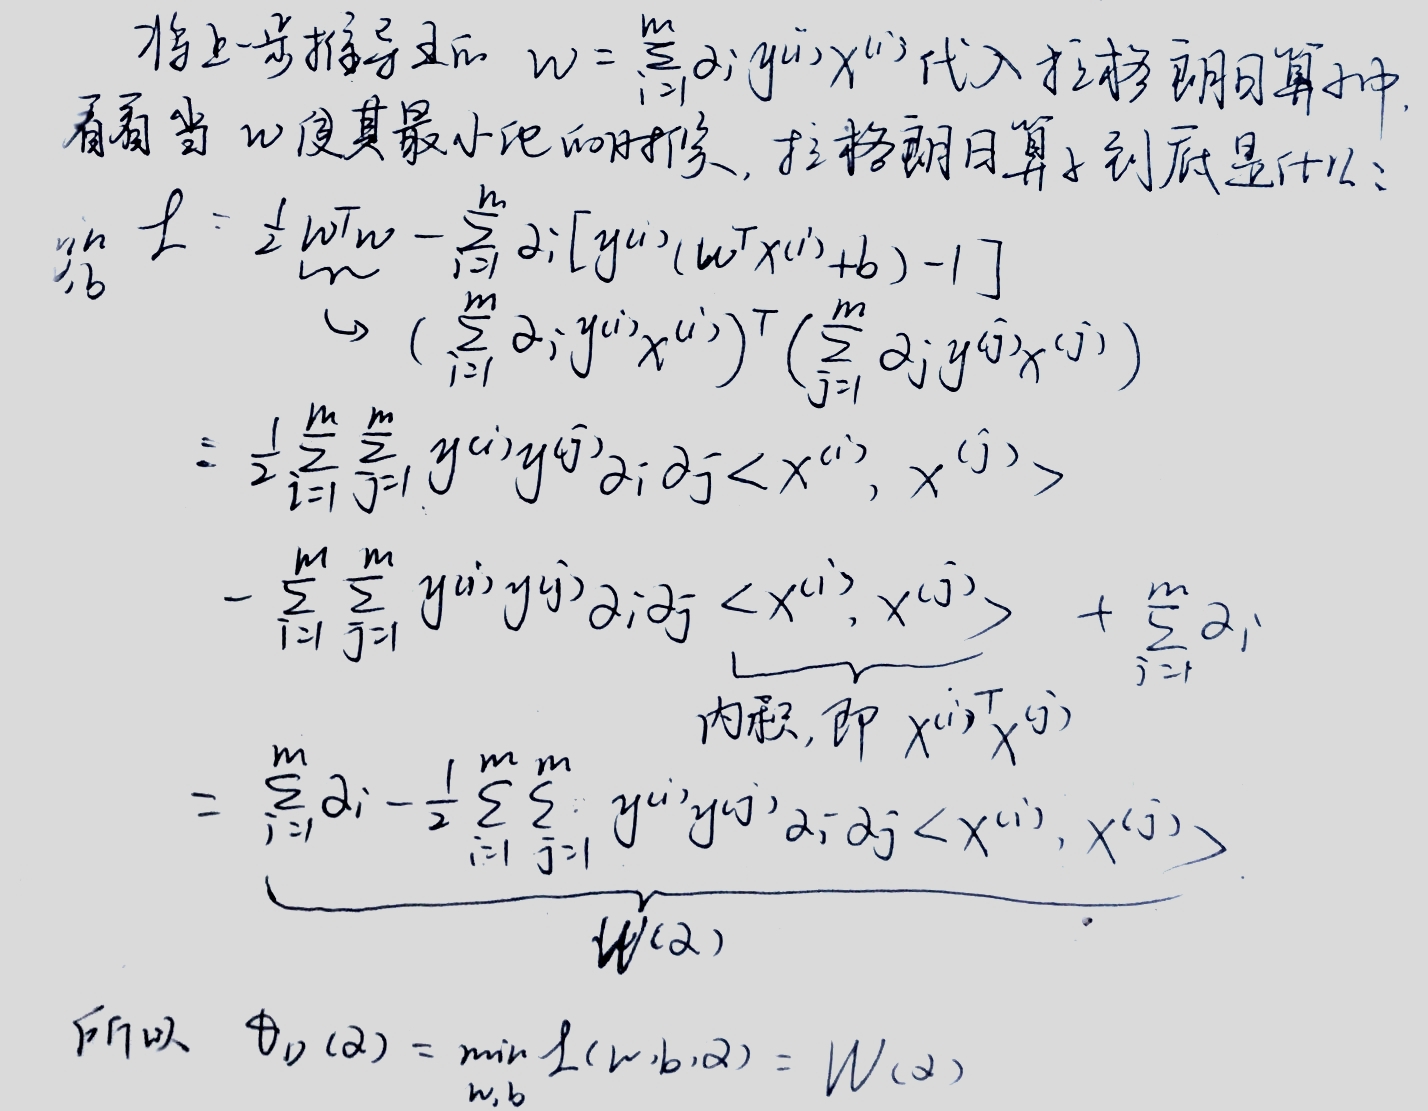 将上一步推导出的 w = \sum_{i=1}^{m} α_i y^{(i)} x^{(i)} 代入拉格朗日算子中,
看看当 w 使其最小化的时候, 拉格朗日算子到底是什么:
min_{w,b} L = \frac{1}{2} w^T w - \sum_{i=1}^{m} α_i [y^{(i)} (w^T x^{(i)} + b) - 1]
↳ (\sum_{i=1}^{m} α_i y^{(i)} x^{(i)})^T (\sum_{j=1}^{m} α_j y^{(j)} x^{(j)})
= \frac{1}{2} \sum_{i=1}^{m} \sum_{j=1}^{m} y^{(i)} y^{(j)} α_i α_j <x^{(i)}, x^{(j)}>
- \sum_{i=1}^{m} \sum_{j=1}^{m} y^{(i)} y^{(j)} α_i α_j <x^{(i)}, x^{(j)}> + \sum_{i=1}^{m} α_i
内积, 即 x^{(i)T} x^{(j)}
= \sum_{i=1}^{m} α_i - \frac{1}{2} \sum_{i=1}^{m} \sum_{j=1}^{m} y^{(i)} y^{(j)} α_i α_j <x^{(i)}, x^{(j)}>
W(α)
所以 θ_D(α) = min_{w,b} L(w,b,α) = W(α)